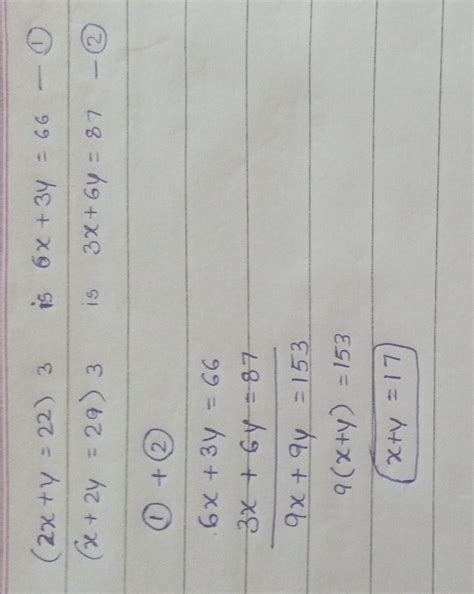 (2x+y = 22) 3 is 6x + 3y = 66 — ①
(x + 2y = 29) 3 is 3x + 6y = 87 — ②
① + ②
6x + 3y = 66
3x + 6y = 87
9x + 9y = 153
9(x+y) = 153
x+y = 17